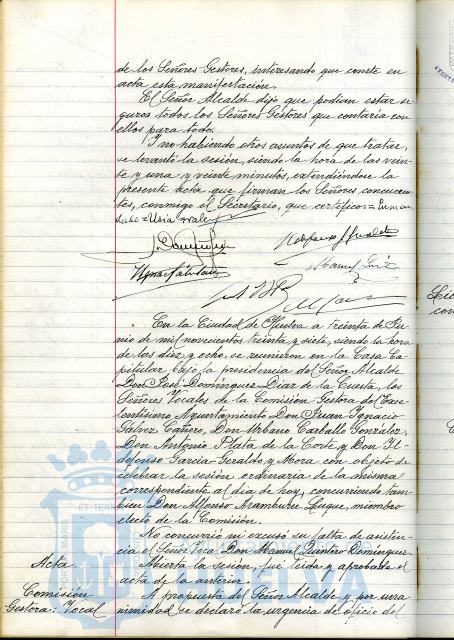 de los Señores Gestores, interesando que conste en
acta esta manifestación.
El Señor Alcalde dijo que podian estar se-
guros todos los Señores Gestores que contaria con
ellos para todo.
Y no habiendo otros asuntos de que tratar,
se levantó la sesión, siendo la hora de las vein-
te y una y veinte minutos, extendiéndose la
presente acta que firman los Señores concurren-
tes, conmigo el Secretario, que certifico =
En la Ciudad de Huelva a treinta de Ju-
nio de mil novecientos treinta y siete, siendo la hora
de las diez y ocho, se reunieron en la Casa Ca-
pitular bajo la presidencia del Señor Alcalde
Don José Domínguez Diaz de la Cuesta, los
Señores Vocales de la Comisión Gestora del Exce-
lentísimo Ayuntamiento Don Juan Ignacio
Gálvez Cañero, Don Urbano Carballo González,
Don Antonio Plata de la Corte y Don Il-
defonso Garcia-Geraldo y Mora con objeto de
celebrar la sesión ordinaria de la misma
correspondiente al dia de hoy, concurriendo tam-
bien Don Alfonso Aramburu Luque, miembro
electo de la Comisión.
No concurrió ni excusó su falta de asisten-
cia el Señor Vocal Don Manuel Quintero Dominguez.
Acta. Abierta la sesión, fue leida y aprobada el
acta de la anterior.
Comisión A propuesta del Señor Alcalde y por una-
Gestora: Vocal nimidad se declaró la urgencia de oficio del